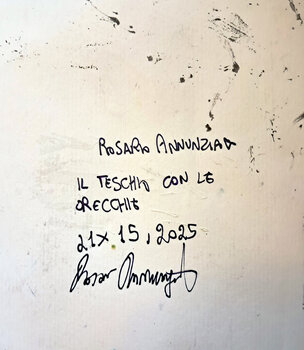 ROSARIO ANNUNZIATA
IL TESCHIO CON LE
ORECCHIE
21X15, 2025
Rosario Annunziata